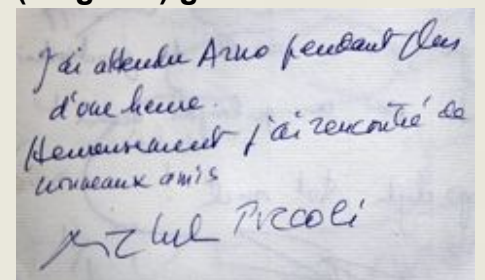 J'ai attendu Arno pendant plus
d'une heure.
Heureusement j'ai rencontré de
nouveaux amis
Michel Piccoli